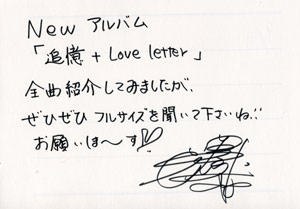 New アルバム
「追憶 + Love letter」
全曲紹介してみましたが、
ぜひぜひ フルサイズを聞いて下さいね!!
お願いしま〜す!